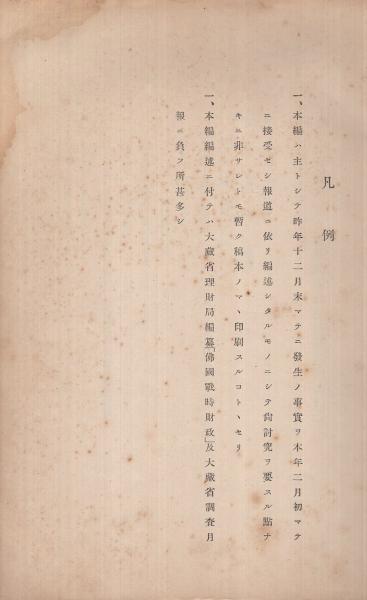 凡例
一、本編ハ主トシテ昨年十二月末マテニ發生ノ事實ヲ本年二月初マテ
ニ接受セシ報道ニ依リ編述シタルモノニシテ尙討究ヲ要スル點ナ
キニ非サレトモ暫ク稿本ノマヽ印刷スルコトヽセリ
一、本編編述ニ付テハ大藏省理財局編纂「佛國戰時財政」及大藏省調査月
報ニ負フ所甚多シ